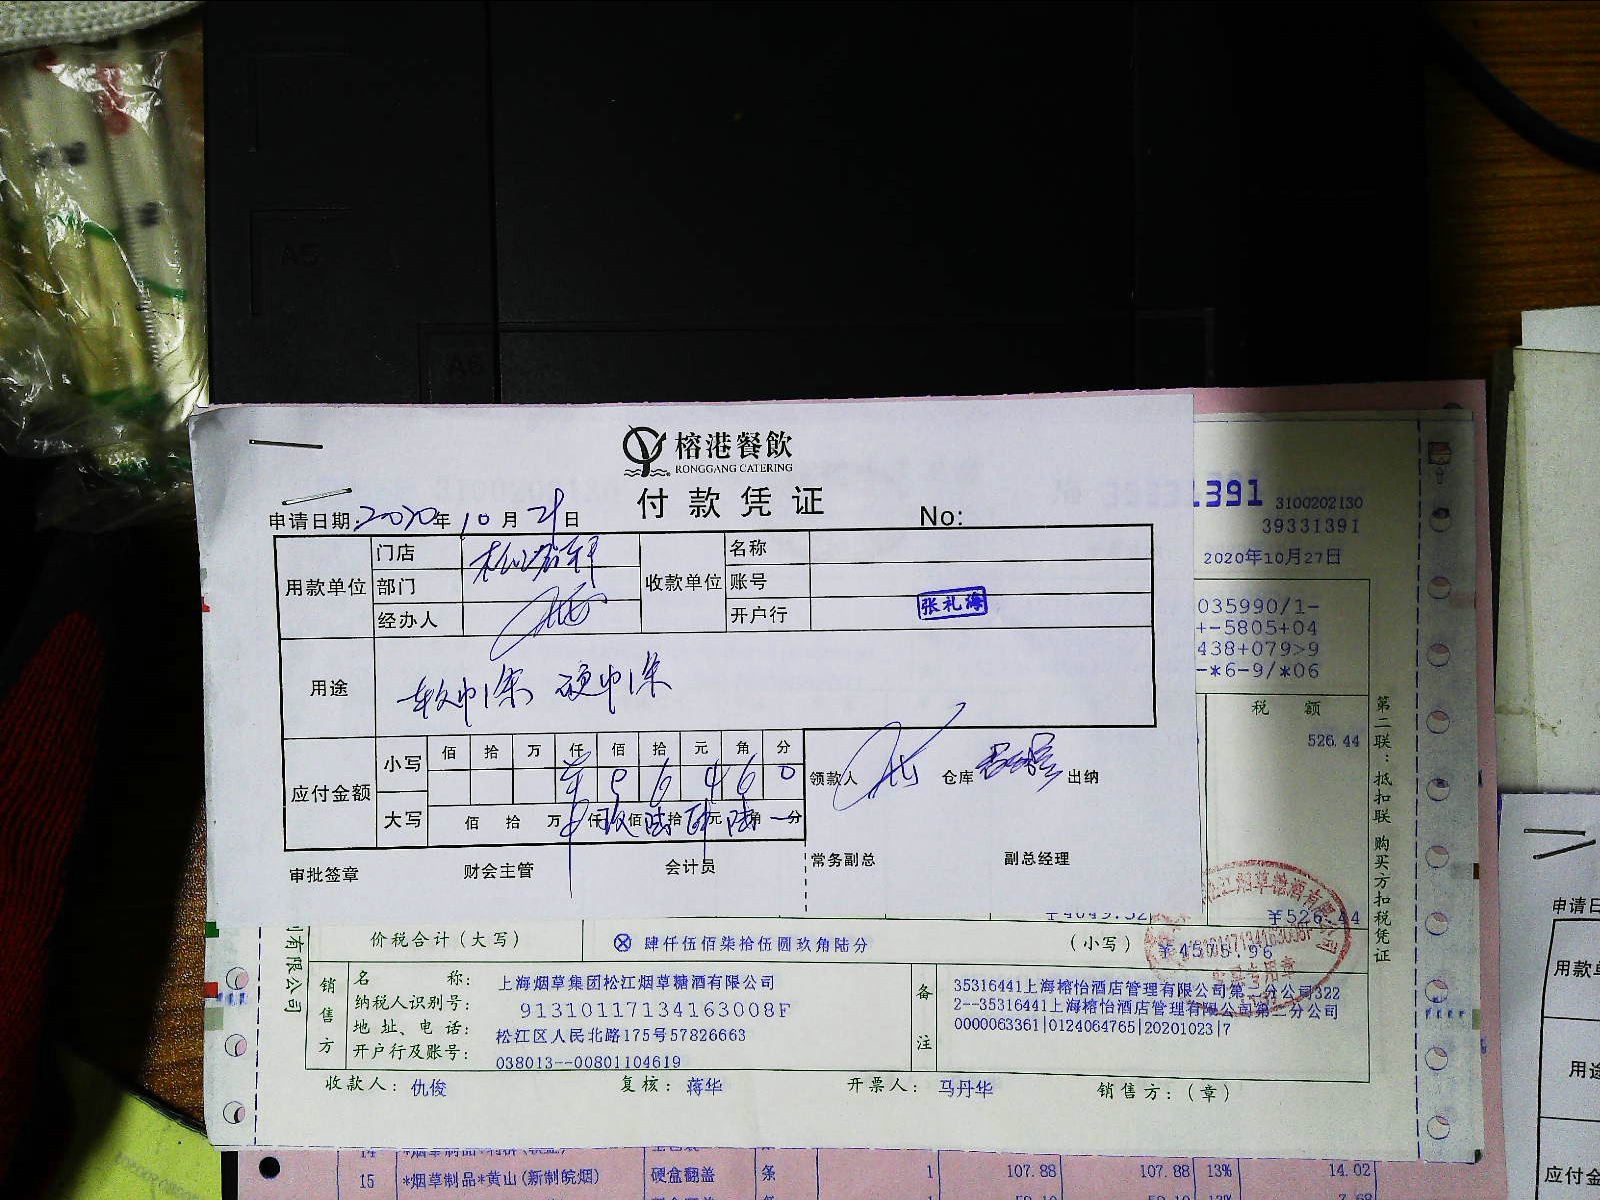 榕港餐飲
RONGGANG CATERING
付款凭证
申请日期: 2020年10月21日
No:
用款单位
门店
部门
经办人
收款单位
名称
账号
开户行
张礼海
用途
软中1条 硬中1条
应付金额
小写
佰 拾 万 仟 佰 拾 元 角 分
9 6 4 6 0
大写
佰 拾 万 仟 佰 拾 元 角 分
领款人
仓库
出纳
审批签章
财会主管
会计员
常务副总
副总经理
1391
3100202130
39331391
2020年10月27日
035990/1-
+-5805+04
438+079>9
-*6-9/*06
税 额
526.44
第二联:抵扣联 购买方扣税凭证
¥526.44
价税合计(大写)
⊗ 肆仟伍佰柒拾伍圆玖角陆分
(小写)
¥4575.96
有限公司
销售方
名 称: 上海烟草集团松江烟草糖酒有限公司
纳税人识别号: 91310117134163008F
地址、电话: 松江区人民北路175号57826663
开户行及账号: 038013--00801104619
备注
35316441上海榕怡酒店管理有限公司第二分公司322
2--35316441上海榕怡酒店管理有限公司第二分公司
0000063361|0124064765|20201023|7
收款人: 仇俊
复核: 蒋华
开票人: 马丹华
销售方:(章)
14
15 *烟草制品*黄山(新制皖烟) 硬盒翻盖 条 1 107.88 107.88 13% 14.02
申请日
用款单
用途
应付金
A5
A6